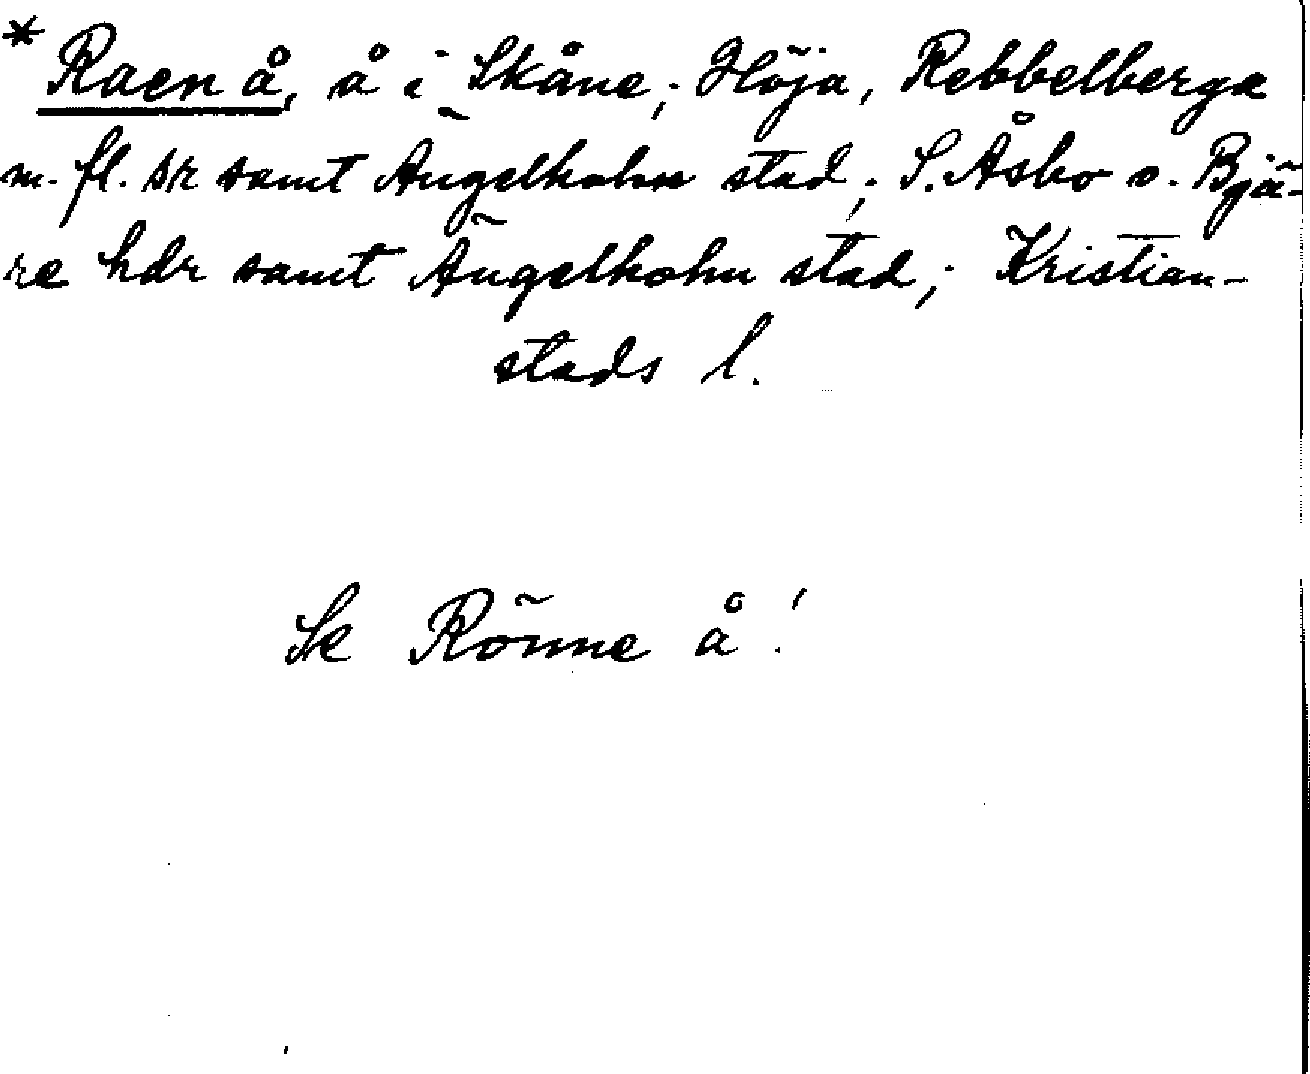 * Raen å, å i Skåne; Höja, Rebbelberga
m. fl. sr samt Ängelholm stad; S. Åsbo o. Bjä-
re hdr samt Ängelholm stad; Kristian-
stads l.
Se Rönne å!